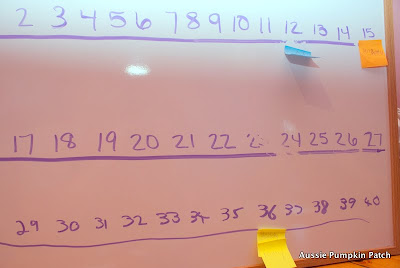 2 3 4 5 6 7 8 9 10 11 12 13 14 15
17 18 19 20 21 22 24 25 26 27
29 30 31 32 33 34 35 36 37 38 39 40
Aussie Pumpkin Patch